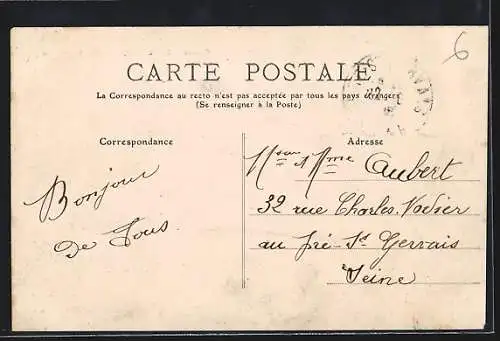 6
CARTE POSTALE
La Correspondance au recto n'est pas acceptée par tous les pays étrangers
(Se renseigner à la Poste)
Correspondance
Bonjour
de Tous
Adresse
Mme Aubert
32 rue Charles Nodier
au pré-St Gervais
Seine